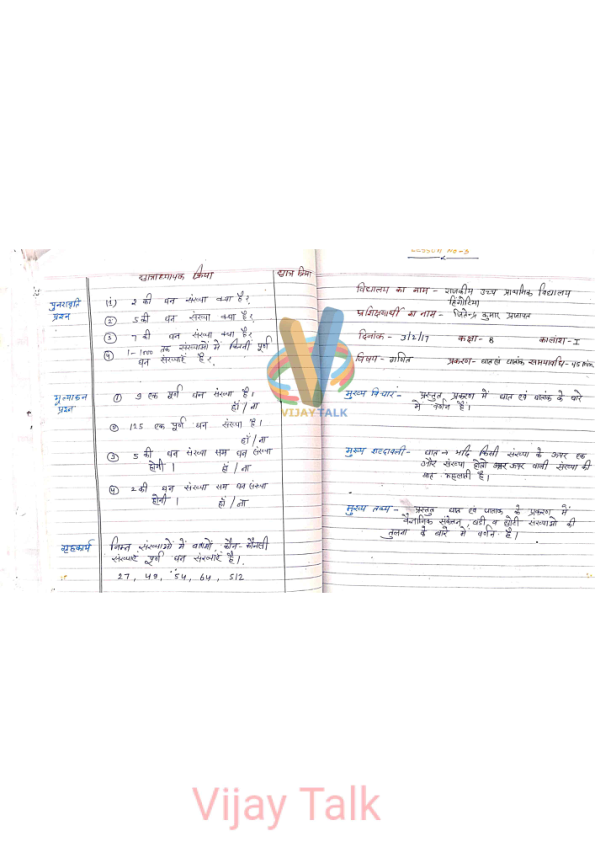 LESSON NO-3
छात्राध्यापक क्रिया
छात्र क्रिया
पुनरावृति
प्रश्न
(1) 2 की घन संख्या क्या है?
(2) 5 की घन संख्या क्या है?
(3) 7 की घन संख्या क्या है?
(4) 1-1000 तक संख्याओं में कितनी पूर्ण
घन संख्याएं है?
मूल्यांकन
प्रश्न
(1) 9 एक पूर्ण घन संख्या है।
हाँ/ना
(2) 125 एक पूर्ण घन संख्या है।
हाँ/ना
(3) 5 की घन संख्या सम घन संख्या
होगी। हाँ/ना
(4) 2 की घन संख्या सम घन संख्या
होगी। हाँ/ना
गृहकार्य
निम्न संख्याओं में बताओं कौन-कौनसी
संख्याएं पूर्ण घन संख्याएं है।
27, 49, 54, 64, 512
विद्यालय का नाम - राजकीय उच्च प्राथमिक विद्यालय
हिंगोरिया
प्रशिक्षणार्थी का नाम - जितेन्द्र कुमार प्रजापत
दिनांक - 3/2/17 कक्षा - 8 कालांश - I
विषय - गणित प्रकरण - घात एवं घातांक समयावधि - 45 मिनट
मुख्य विचार - प्रस्तुत प्रकरण में घात एवं घातांक के बारे
में वर्णन है।
मुख्य शब्दावली - घात → यदि किसी संख्या के ऊपर एक
और संख्या हो तो ऊपर वाली संख्या की
घात कहलाती है।
मुख्य तथ्य - प्रस्तुत घात एवं घातांक के प्रकरण में
वैज्ञानिक संकेतन, बड़ी व छोटी संख्याओं की
तुलना के बारे में वर्णन है।
VIJAY TALK
Vijay Talk